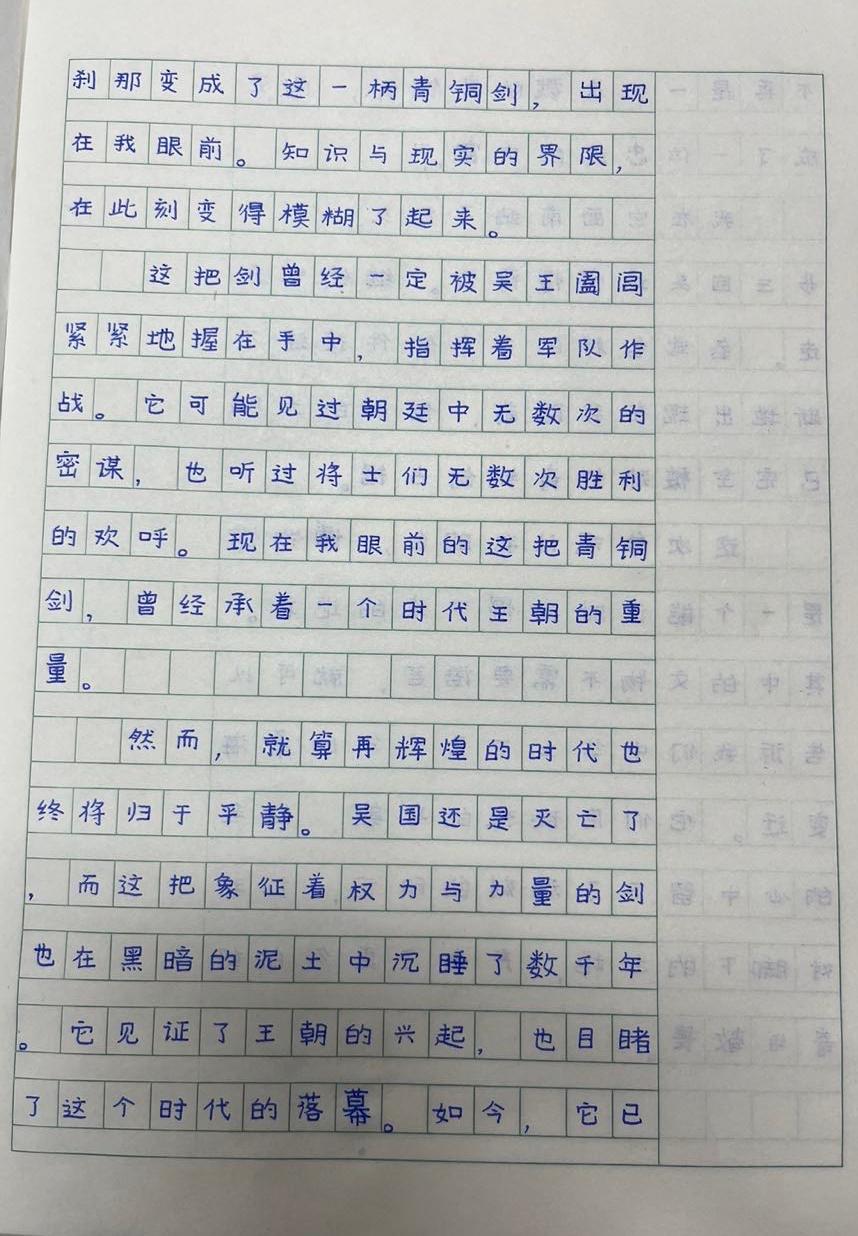 刹那变成了这一柄青铜剑，出现
在我眼前。知识与现实的界限，
在此刻变得模糊了起来。
这把剑曾经一定被吴王阖闾
紧紧地握在手中，指挥着军队作
战。它可能见过朝廷中无数次的
密谋，也听过将士们无数次胜利
的欢呼。现在我眼前的这把青铜
剑，曾经承着一个时代王朝的重
量。
然而，就算再辉煌的时代也
终将归于平静。吴国还是灭亡了
，而这把象征着权力与力量的剑
也在黑暗的泥土中沉睡了数千年
。它见证了王朝的兴起，也目睹
了这个时代的落幕。如今，它已